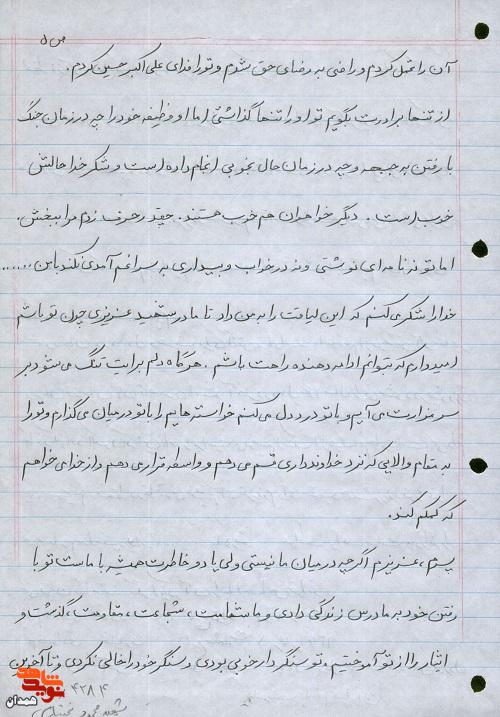 ص ۵
آن را تحمل کردم و راضی به رضای حق شدم و تو را فدای علی اکبر حسین کردم.
از تنها برادرت بگویم تو او را تنها گذاشتی اما او وظیفه خود را چه در زمان جنگ
با رفتن به جبهه و چه در زمان حال بخوبی انجام داده است و شکر خدا حالش
خوب است. دیگر خواهران هم خوب هستند. چقدر حرف زدم مرا ببخش.
اما تو نه نامه ای نوشتی و نه در خواب و بیداری به سراغم آمدی نکند با من ......
خدا را شکر می کنم که این لیاقت را به من داد تا مادر شهید عزیزی چون تو باشم
امیدوارم که بتوانم ادامه دهنده راهت باشم. هر گاه دلم برایت تنگ می شود بر
سر مزارت می آیم و با تو درد دل می کنم خواسته هایم را با تو در میان می گذارم و تو را
به مقام والایی که نزد خداوند داری قسم می دهم و واسطه قرار می دهم و از خدا می خواهم
که کمکم کند.
پسرم، عزیزم اگر چه در میان ما نیستی ولی یاد و خاطرت همیشه با ماست تو با
رفتن خود به ما درس زندگی دادی و ما شهامت، شجاعت، مقاومت، گذشت و
ایثار را از تو آموختیم، تو سنگر دار خوبی بودی و سنگر خود را خالی نکردی و تا آخرین
۴۲۸۴
شهید محمود
نوید شاهد
همدان